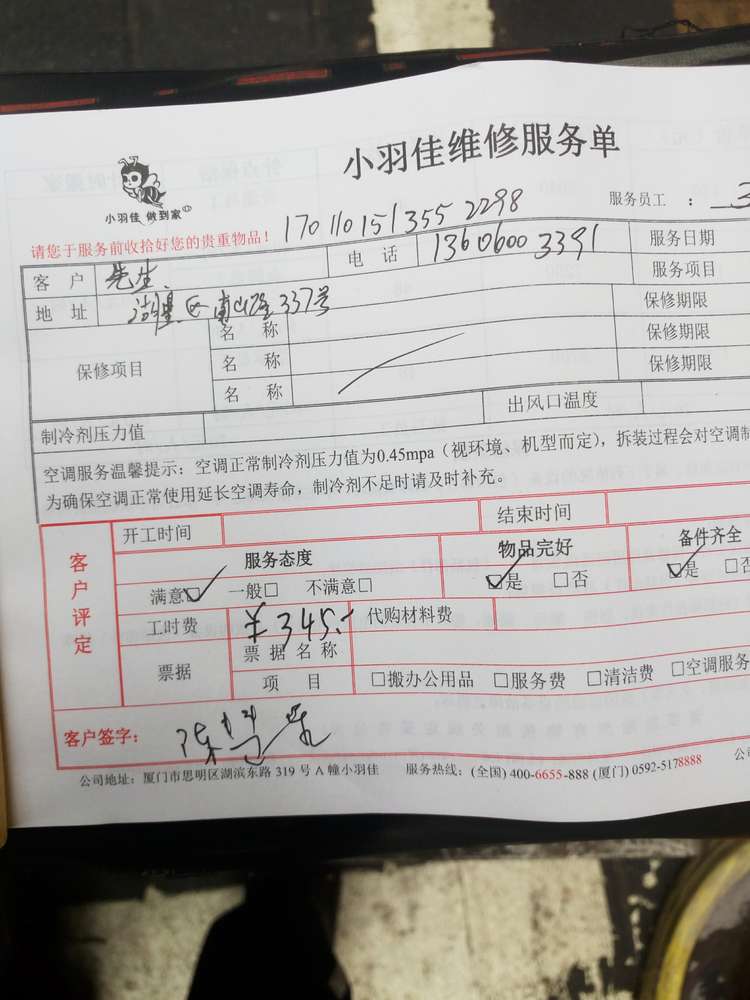 小羽佳维修服务单
小羽佳 做到家
服务员工 :
请您于服务前收拾好您的贵重物品! 1701101513552298
客 户 先生 电 话 13606003391 服务日期
地 址 湖里区南山路337号 服务项目
保修项目 名 称 保修期限
名 称 保修期限
名 称 保修期限
制冷剂压力值 出风口温度
空调服务温馨提示:空调正常制冷剂压力值为0.45mpa(视环境、机型而定),拆装过程会对空调制
为确保空调正常使用延长空调寿命,制冷剂不足时请及时补充。
客户评定
开工时间 结束时间
服务态度 物品完好 备件齐全
满意☑ 一般□ 不满意□ ☑是 □否 ☑是 □否
工时费 ¥345.- 代购材料费
票据 票据名称
项 目 □搬办公用品 □服务费 □清洁费 □空调服务
客户签字:
公司地址:厦门市思明区湖滨东路 319 号 A 幢小羽佳 服务热线:(全国) 400-6655-888 (厦门) 0592-5178888 公